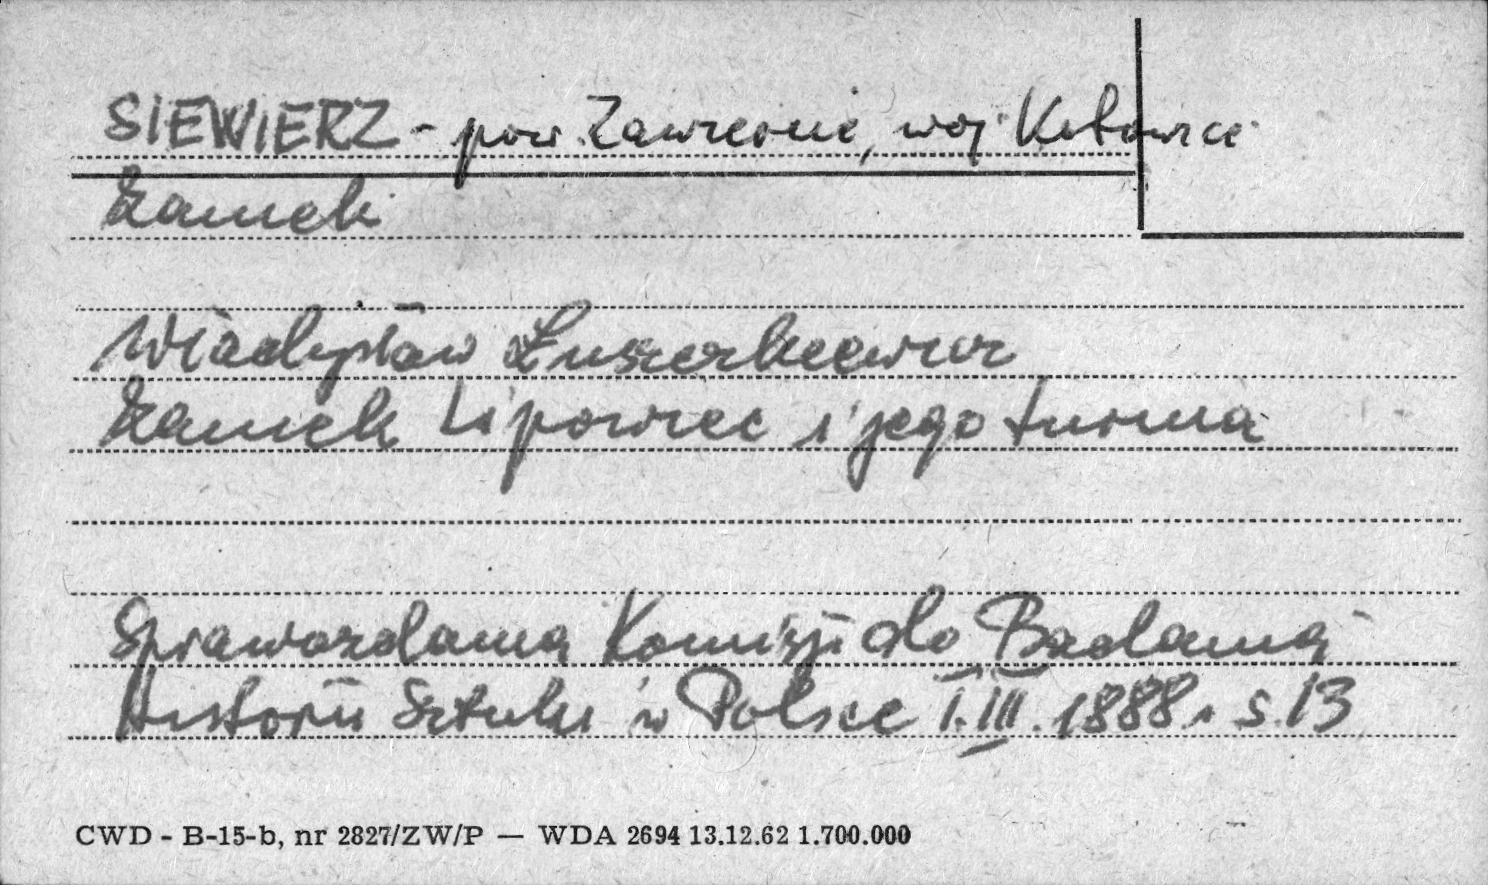 SIEWIERZ - pow. Zawiercie, woj. Katowice
Zamek
Władysław Łuszczkiewicz
Zamek Lipowiec i jego turma
Sprawozdania Komisji do Badania
Historii Sztuki w Polsce T. III. 1888. s. 13
CWD - B-15-b, nr 2827/ZW/P — WDA 2694 13.12.62 1.700.000